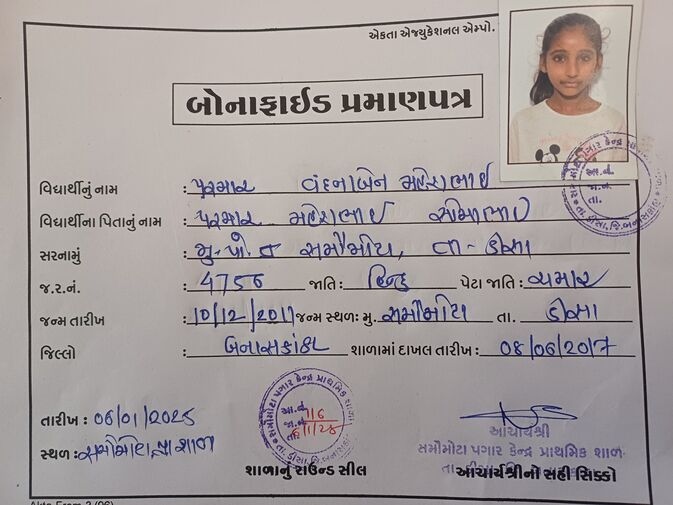 એકતા એજ્યુકેશનલ એમ્પો.
બોનાફાઇડ પ્રમાણપત્ર
વિદ્યાર્થીનું નામ : પરમાર વંદનાબેન મહેશભાઈ
વિદ્યાર્થીના પિતાનું નામ : પરમાર મહેશભાઈ સોમાભાઈ
સરનામું : મુ.પો. સમૌમોટા, તા- ડીસા
જ.ર.નં. : 4756 જાતિ : હિન્દુ પેટા જાતિ : ચમાર
જન્મ તારીખ : 10/12/2011 જન્મ સ્થળ: મુ. સમૌમોટા તા. ડીસા
જિલ્લો : બનાસકાંઠા શાળામાં દાખલ તારીખ : 08/06/2017
તારીખ : 06/01/2025
સ્થળ : સમૌમોટા પ્રા શાળા
શાળાનું રાઉન્ડ સીલ
આચાર્યશ્રી
સમૌમોટા પગાર કેન્દ્ર પ્રાથમિક શાળા
આચાર્યશ્રીનો સહી સિક્કો